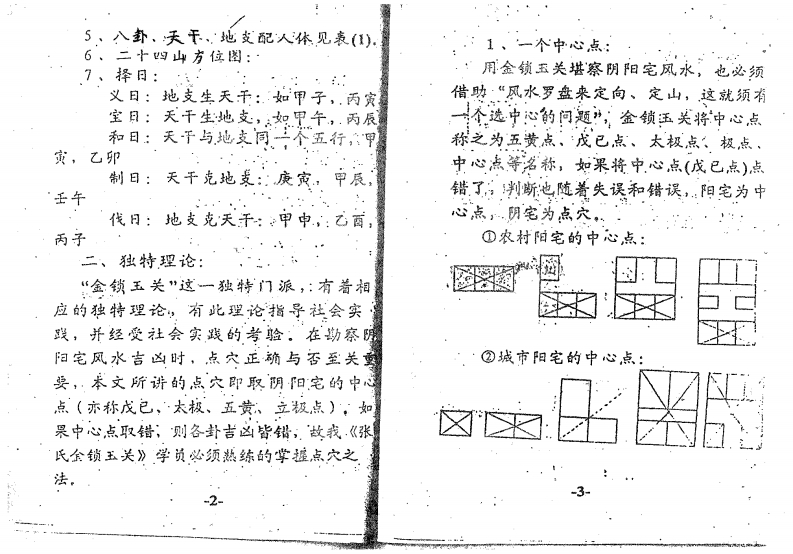 5、八卦、天干、地支配人体见表(1)。
6、二十四山方位图:
7、择日:
义日: 地支生天干: 如甲子, 丙寅
宝日: 天干生地支, 如甲午, 丙辰
和日: 天干与地支同一个五行, 甲
寅, 乙卯
制日: 天干克地支: 庚寅, 甲辰,
壬午
伐日: 地支克天干: 甲申, 乙酉,
丙子
二、独特理论:
“金锁玉关”这一独特门派, 有着相
应的独特理论。有此理论指导社会实
践, 并经受社会实践的考验。在勘察阴
阳宅风水吉凶时, 点穴正确与否至关重
要, 本文所讲的点穴即取阴阳宅的中心
点 (亦称戊已、太极、五黄、立极点), 如
果中心点取错, 则各卦吉凶皆错, 故我《张
氏金锁玉关》学员必须熟练的掌握点穴之
法。
-2-
1、一个中心点:
用金锁玉关堪察阴阳宅风水, 也必须
借助“风水罗盘来定向、定山, 这就须有
一个选中心的问题”, 金锁玉关将中心点
称之为五黄点、戊已点、太极点、极点、
中心点等名称, 如果将中心点(戊已点)点
错了, 判断也随着失误和错误, 阳宅为中
心点, 阴宅为点穴。
①农村阳宅的中心点:
②城市阳宅的中心点:
-3-